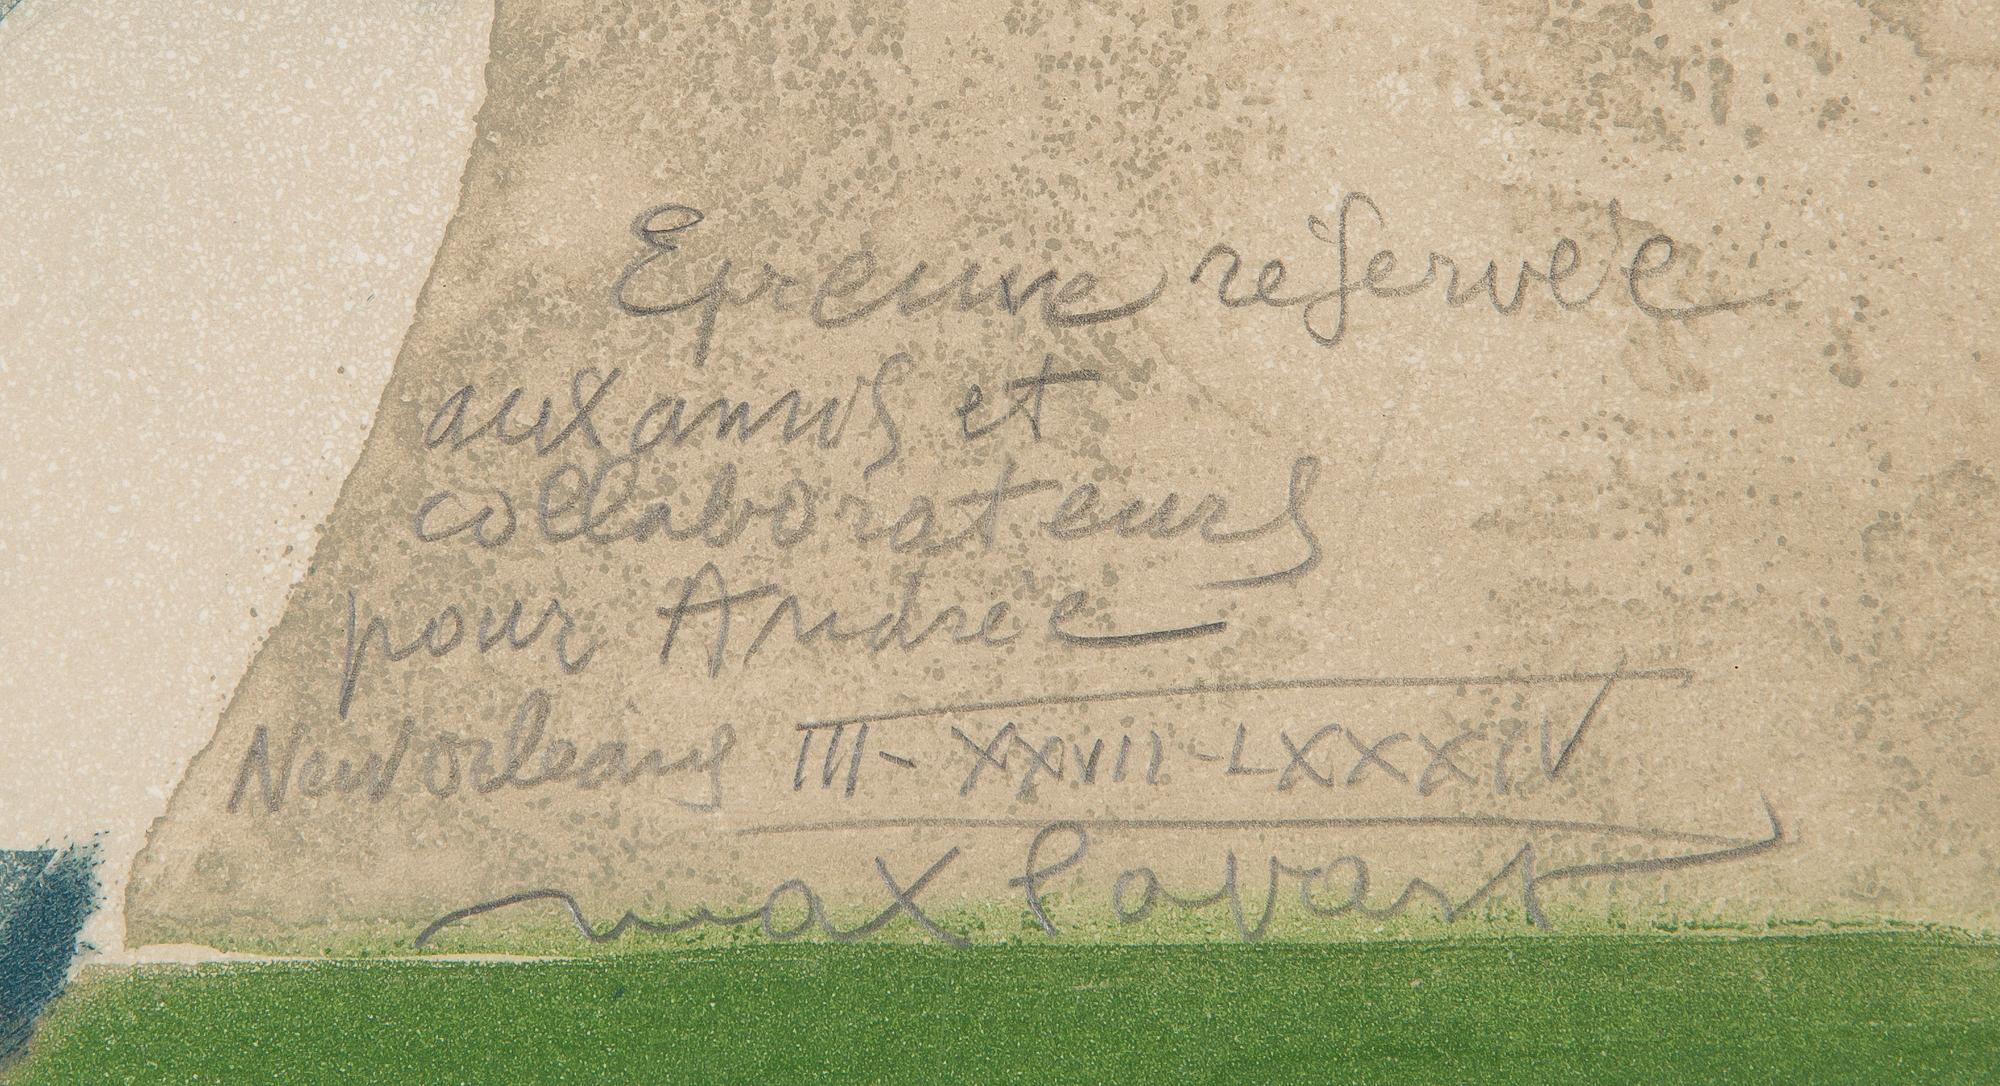 Epreuve reservée
aux amis et
collaborateurs
pour Andrée
New orleans III - XXVII - LXXXIV
max Papart